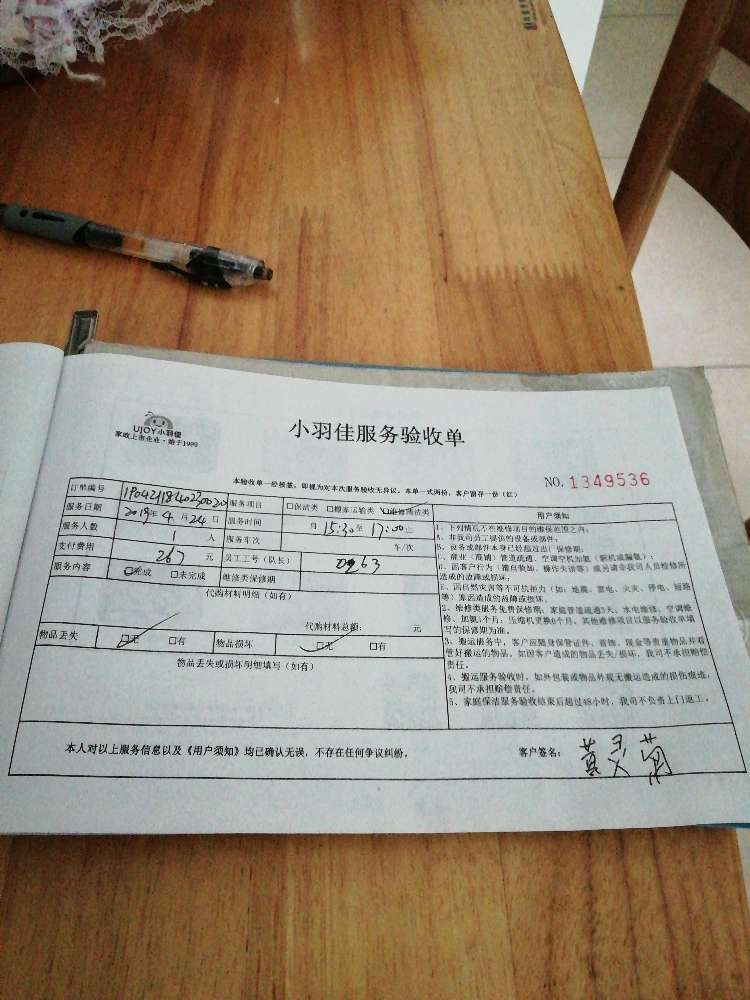 UJOY小羽佳
家政上市企业·始于1999
小羽佳服务验收单
NO. 1349536
本验收单一经签签，即视为对本次服务验收无异议。本单一式两份，客户留存一份（红）
订单编号 服务项目 □保洁类 □搬家运输类 □维修清洁类
服务日期 2019年4月24日 服务时间 自 15:30 至 17:00 止
服务人数 1 人 服务车次 车/次
支付费用 267 元 员工工号（队长） 0263
服务内容 □完成 □未完成 维修类保修期
代购材料明细（如有）
代购材料总额： 元
物品丢失 □无 □有 物品损坏 □无 □有
物品丢失或损坏明细填写（如有）
用户须知
1、下列情况不在维修项目的维保范围之内：
A、非我司员工提供的设备或部件；
B、设备或部件本身已经超过出厂保修期；
造成的故障或损坏；
等）原因造成的故障或损坏。
2、维修类服务免费保修期：家庭管道疏通3天、水电维修、空调维
修、加氟1个月；压缩机更换6个月，其他维修项目以服务验收单填
写的保修期为准。
3、搬运服务中，客户应随身保管证件、首饰、现金等贵重物品并看
管好搬运的物品，如因客户造成的物品丢失/损坏，我司不承担赔偿
责任。
4、搬运服务验收时，如外包装或物品外观无搬运造成的损伤痕迹，
我司不承担赔偿责任。
5、家庭保洁服务验收结束后超过48小时，我司不负责上门返工。
本人对以上服务信息以及《用户须知》均已确认无误，不存在任何争议纠纷。 客户签名：